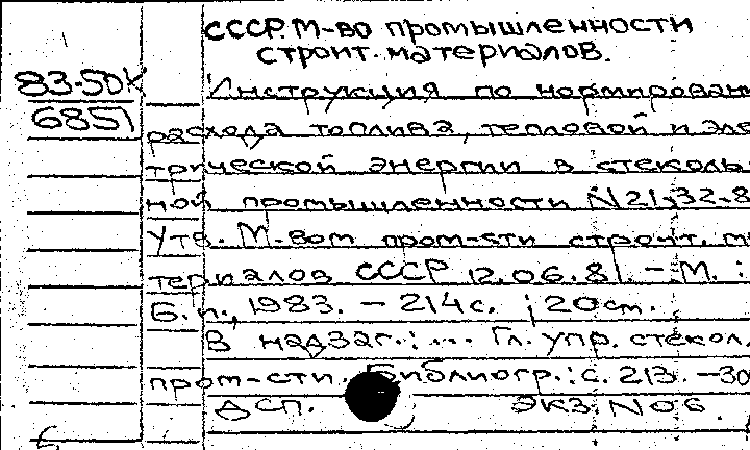 СССР. М-во промышленности
строит. материалов.
83-50К
6851
Инструкция по нормирован
расхода топлива, тепловой и эле
трической энергии в стеколь
ной промышленности N21-32-8
Утв. М-вом пром-сти строит. м
териалов СССР 12.06.81. – М. :
Б. и., 1983. – 214 с. ; 20 см.
В надзаг.: ... Гл. упр. стекол.
пром-сти. Библиогр.: с. 213. – 30
ДСП. Экз. N06.